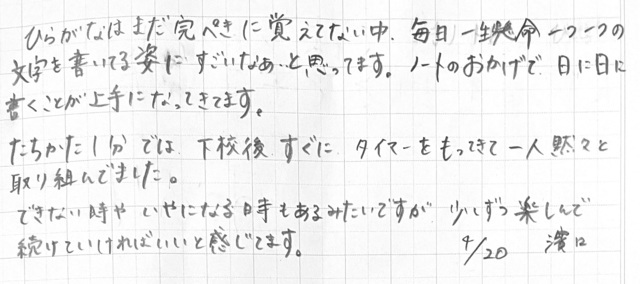 ひらがなはまだ完ぺきに覚えてない中、毎日一生懸命一つ一つの
文字を書いてる姿に すごいなぁ、と思ってます。ノートのおかげで 日に日に
書くことが上手になってきてます。
たちかた1分では、下校後 すぐに タイマーをもってきて一人黙々と
取り組んでました。
できない時や いやになる時もあるみたいですが 少しずつ楽しんで
続けていければいいと感じてます。 4/20 濱口